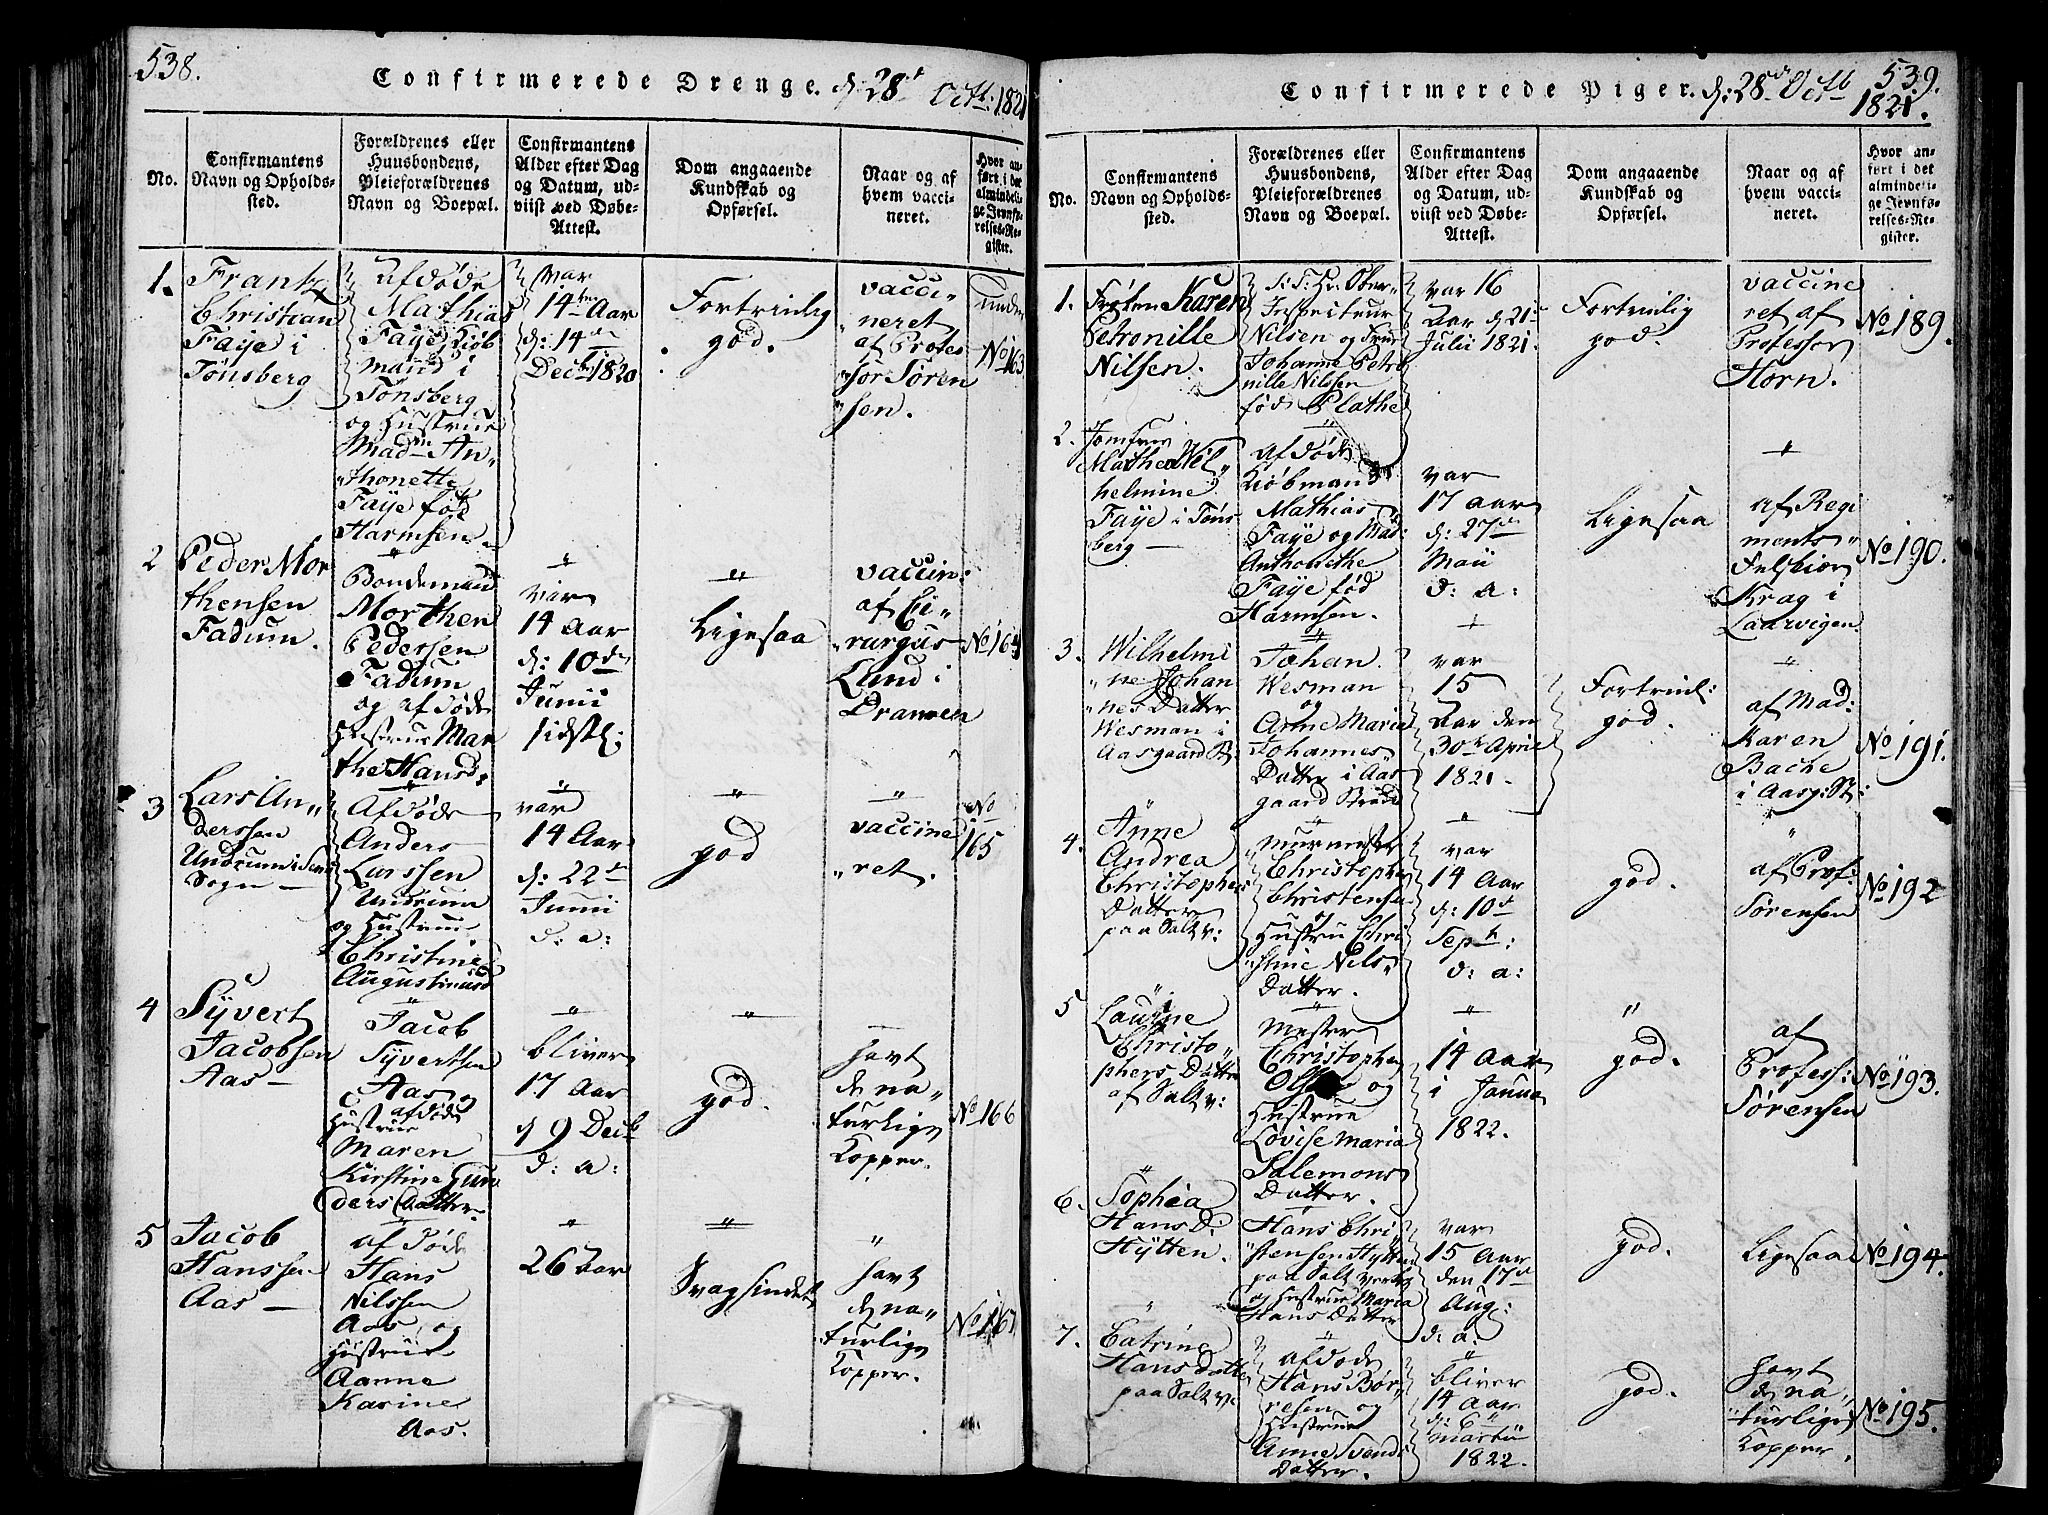 538.
Confirmerede Drenge. d: 28d Octb: 1821
No.
Confirmantens
Navn og Opholds-
sted.
Forældrenes eller
Huusbondens,
Pleieforældrenes
Navn og Boepæl.
Confirmantens
Alder efter Dag
og Datum, ud-
viist ved Døbe-
Attest.
Dom angaaende
Kundskab og
Opførsel.
Naar og af
hvem vacci-
neret.
Hvor an-
ført i det
almindeli-
ge Jevnfø-
relses-Re-
gister.
1.
Frantz
Christian
Faÿe i
Tönsberg
afdøde
Mathias
Faÿe, Kiöb
mand i
Tönsberg
og Hustrue
Mad: An„
„thonette
Faÿe fød
Harmsen.
var
14 Aar
d: 14de
Decbr 1820
Fortrinlig
god.
vacci„
„neret
af Profes
„sor Sören
„sen.
under
No 163
2
Peder Mor
thensen
Fadum.
Bondemand
Morthen
Pedersen
Fadum
og afdøde
Hustrue Mar
the Hansd.
var
14 Aar
d: 10de
Junii
sidstl:
Ligesaa
vaccin:
af Ci„
„rurgus
Lund i
Dramen
No 164
3
Lars An„
derssen
Undrum i Sems
Sogn —
Afdøde
Anders
Larssen
Undrum
og Hustrue
Christine
Augustinusd
var
14 Aar
d: 22de
Junii
d: a:
god
vaccine
„ret.
No
165
4
Syvert
Jacobsen
Aas —
Jacob
Syvertsen
Aas og
afdøde
Hustrue
Maren
Kirstine Gun
ders Datter.
bliver
17 Aar
d 9 Decb
d: a:
god.
havt
de na„
turlige
Kopper.
No 166
5
Jacob
Hanssen
Aas —
afdøde
Hans
Nilssen
Aas, og
Hustrue
Aanne
Karine
Aas.
26 Aar
Svagsindet
havt
de na„
turlige
Kopper.
No 167
539.
Confirmerede Piger. d: 28d Octb
1821.
No.
Confirmantens
Navn og Opholds-
sted.
Forældrenes eller
Huusbondens,
Pleieforældrenes
Navn og Boepæl.
Confirmantens
Alder efter Dag
og Datum, ud-
viist ved Døbe-
Attest.
Dom angaaende
Kundskab og
Opførsel.
Naar og af
hvem vacci-
neret.
Hvor an-
ført i det
almindeli-
ge Jevnfø-
relses-Re-
gister.
1.
Frøken Karen
Petronille
Nilsen.
S: T: Hr. Ober„
Inspecteur
Nilsen og Frue
Johanne Petro
nille Nilssen
fød Plathe
var 16
Aar d 21de
Julii 1821.
Fortrinlig
god.
vaccine
ret af
Professor
Horn.
No 189.
2.
Jomfru
Mathea Wil„
helmine
Faÿe i Töns
berg —
afdøde
Kiöbmand
Mathias
Faÿe og Mad:
Anthonethe
Faÿe fød
Harmsen.
var
17 Aar
d: 27de
Maii
d: a:
Ligesaa
af Regi
ments„
Feltskiær
Krag i
Laurvigen.
No 190.
3.
Wilhelmi
„ne Johan
„nes Datter
Wesman i
Aasgaard St.
Johan
Wesman
og
Anne Maria
Johannes
Datter i Aas
gaard Strand
var
15
Aar den
30te April
1821.
Fortrinl:
god.
af Mad:
Karen
Bache
i Aasg: St:
No 191.
4.
Anne
Andrea
Christophers
Datter
paa Salt v:
Murmester
Christopher
Christensen
og
Hustrue Chri
„stine Nils„
Datter.
var
14 Aar
d: 10de
Septb:
d: a:
god.
af Prof:
Sørensen
No 192
5
Laurine
Christo„
phers Datter
af Salt v:
Mester
Christopher
Olsen og
Hustrue
Lovise Maria
Salemons
Datter.
14 Aar
i Janua
1822.
god.
af
Professr:
Sørensen
No 193.
6.
Sophia
Hans D:
Hÿtten.
Hans Chri
„stensen Hÿtten
paa Salt verk
og Hustrue Maria
Hans Datter
var
15 Aar
den 17de
Aug:
d: a:
god.
Ligesaa
No 194.
7.
Catrine
Hans Datter
paa Salt v.
afdøde
Hans Bör„
resen og
Hustrue
Anne Svends
Datter.
bliver
14 Aar
d: 6te
Martii
1822.
god.
havt
de na„
„turlige
Kopper.
No 195.